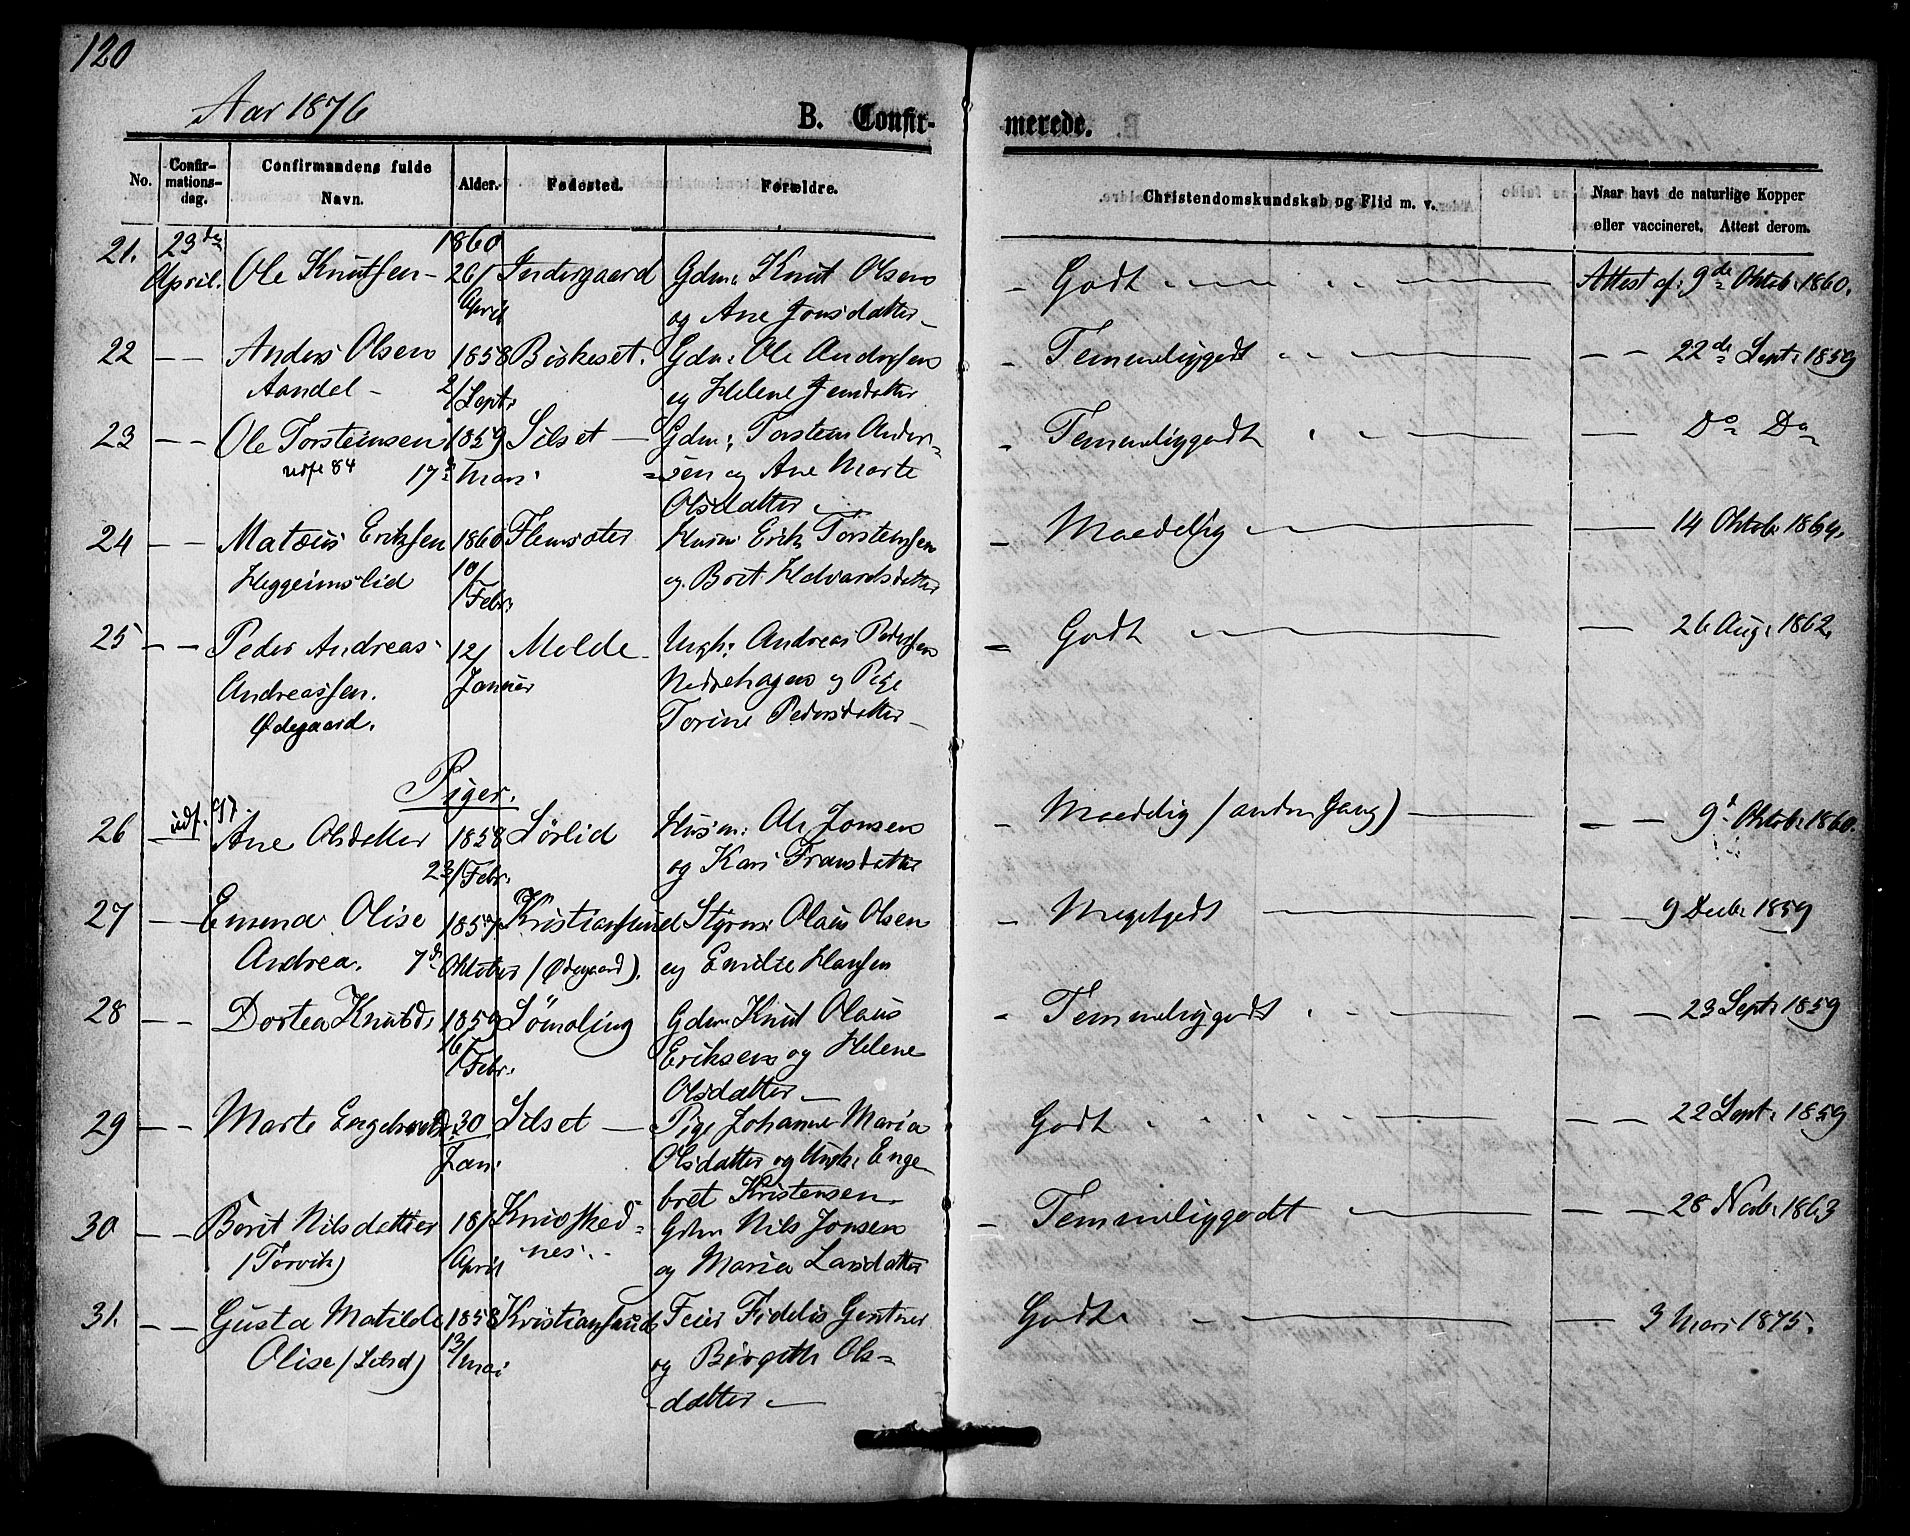 120
Aar 1876
B. Confir-
merede.
No.
Confir-
mations-
dag.
Confirmandens fulde
Navn.
Alder.
Fødested.
Forældre.
Christendomskundskab og Flid m. v.
Naar havt de naturlige Kopper
eller vaccineret. Attest derom.
21. 23de 1860
April. Ole Knutsen - 26/ Indergaard Gdm: Knut Olsen - Godt Attest af: 9de Oktob: 1860.
April og Ane Jonsdatter -
22 - - Anders Olsen 1858 Biskeset. Gdm: Ole Andersen - Temmeliggodt - - 22de Sept: 1859
Aandal - 2/Sept: og Helene Jensdatter
23 - - Ole Torsteinsen 1859 Silset - Gdm: Torstein Ander- - Temmeliggodt - Do Do
udf 84 17de Mars: =sen og Ane Marte
Olsdatter -
24 - - Matæus Eriksen 1860 Flemsæter Husm: Erik Torsteinsen - Maadelig - 14 Oktob: 1864.
Heggeimslid 10/Febr: og Brit Halvardsdatter
25 - - Peder Andreas 12/ Molde - Ungk: Andreas Pedersen - Godt - 26 Aug: 1862.
Andreassen. Januar Nedrehagen og Pige
Ødegaard. Torine Pedersdatter -
Piger.
udf. 97
26 Ane Olsdatter 1858 Sørlid Husm: Ole Jonsen - Maadelig (anden Gang) - - - 9d Oktob: 1860.
23/Febr: og Kari Fransdatter
27 - - Emma Olise 1857 Kristiansund Styrm: Olaus Olsen - Megetgodt - - 9 Decbr 1859
Andrea. 7de Oktober (Ødegaard). og Emilie Hansen
28 - - Dortea Knutsd: 1859 Sømoling Gdm: Knut Olaus - Temmeliggodt - - 23 Sept: 1859
16/Febr: Eriksen og Helene
Olsdatter -
29 - - Marte Engebretsd: 30 Silset - Pige Johanne Maria Godt - - 22 Sept: 1859
Jan: Olsdatter og Ungk: Enge
bret Kristensen -
30 - - Borit Nilsdatter 18/ Knusked- Gdm Nils Jonsen - Temmeliggodt - - 28 Novb: 1863
(Torvik) April nes. og Maria Larsdatter
31. - - Gusta Matilde 1858 Kristiansund Feier Fidelis Gentner Godt - - 3 Mars 1875.
Olise (Silset) 13/Mai og Birgitte Ols-
datter -